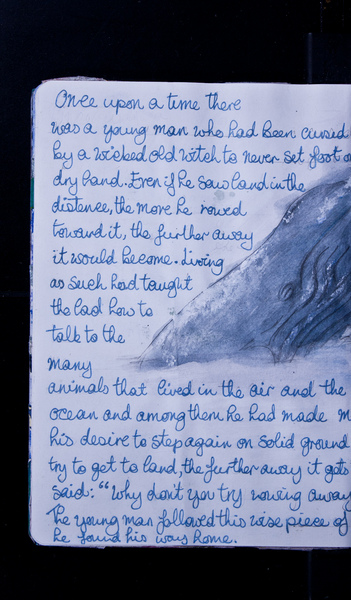 Once upon a time there
was a young man who had been cursed
by a wicked old witch to never set foot o
dry land. Even if he saw land in the
distance, the more he rowed
toward it, the further away
it would become. Living
as such had taught
the lad how to
talk to the
many
animals that lived in the air and the
ocean and among them he had made m
his desire to step again on solid ground
try to get to land, the further away it gets
said: "Why don't you try rowing away
The young man followed this wise piece of
he found his way home.